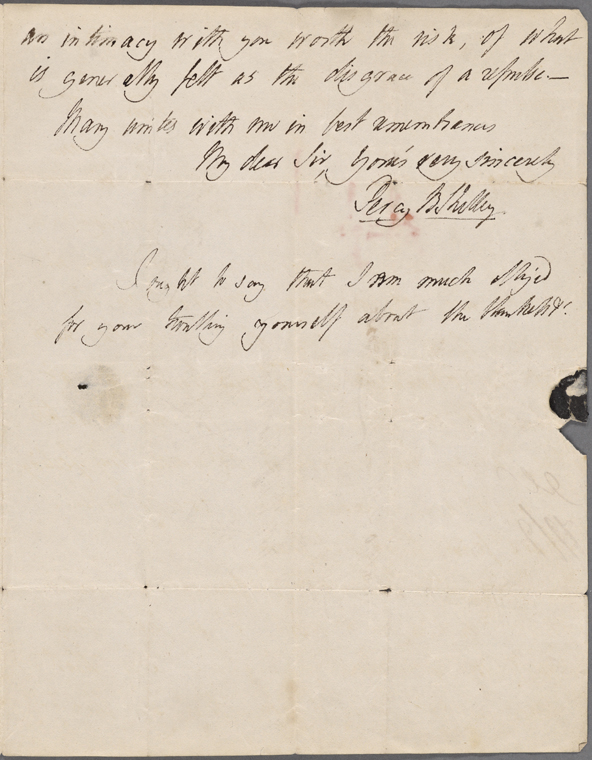 an intimacy with you worth the risk, of what
is generally felt as the disgrace of a repulse.—
Mary unites with me in best remembrances
My dear Sir, Yours very sincerely
Percy B Shelley
I ought to say that I am much obliged
for your troubling yourself about the blankets &c.